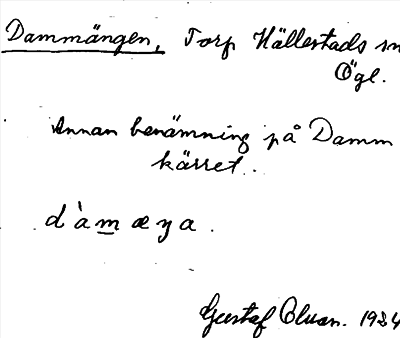 Dammängen, Torp Hällestads sn
Ögl.
Annan benämning på Damm
kärret.
Gustaf 1924